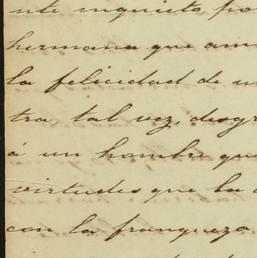 nte inquieto po
hermana que am
la felicidad de u
tra, tal vez, desgr
á un hombre que
virtudes que la a
con la franqueza